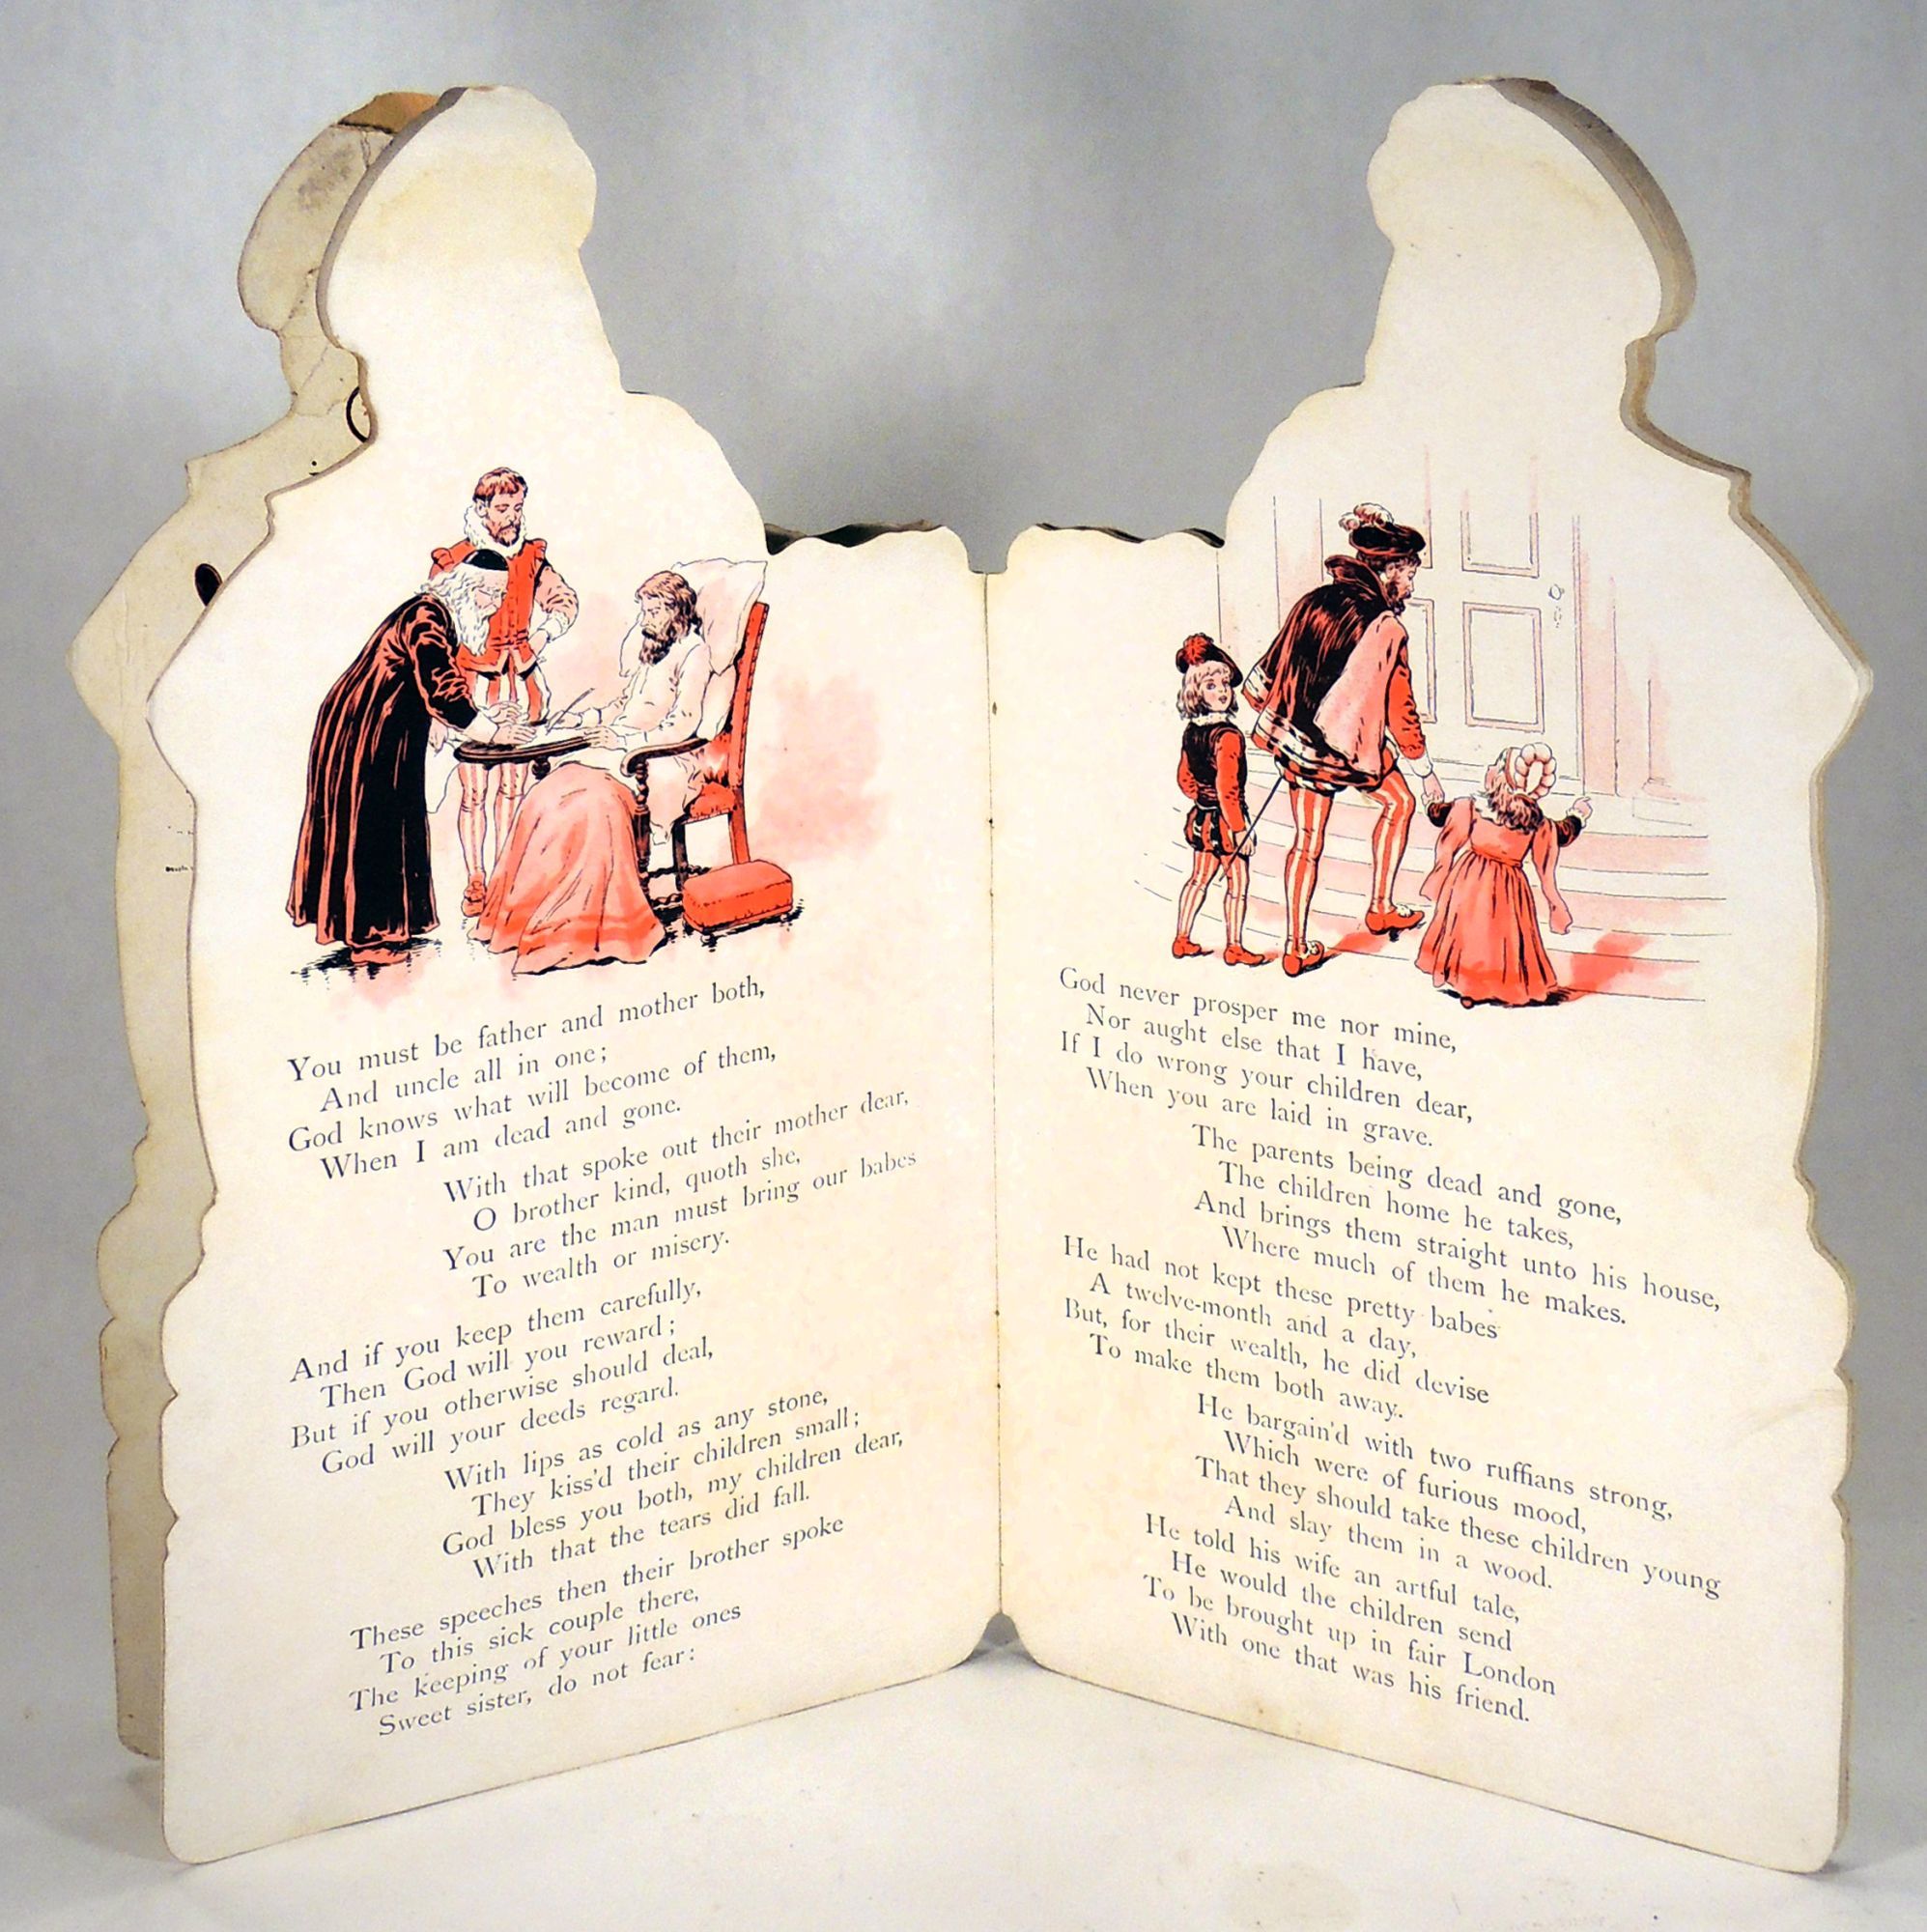 You must be father and mother both,
And uncle all in one;
God knows what will become of them,
When I am dead and gone.
With that spoke out their mother dear,
O brother kind, quoth she,
You are the man must bring our babes
To wealth or misery.
And if you keep them carefully,
Then God will you reward;
But if you otherwise should deal,
God will your deeds regard.
With lips as cold as any stone,
They kiss'd their children small;
God bless you both, my children dear,
With that the tears did fall.
These speeches then their brother spoke
To this sick couple there,
The keeping of your little ones
Sweet sister, do not fear:
God never prosper me nor mine,
Nor aught else that I have,
If I do wrong your children dear,
When you are laid in grave.
The parents being dead and gone,
The children home he takes,
And brings them straight unto his house,
Where much of them he makes.
He had not kept these pretty babes
A twelve-month and a day,
But, for their wealth, he did devise
To make them both away.
He bargain'd with two ruffians strong,
Which were of furious mood,
That they should take these children young
And slay them in a wood.
He told his wife an artful tale,
He would the children send
To be brought up in fair London
With one that was his friend.